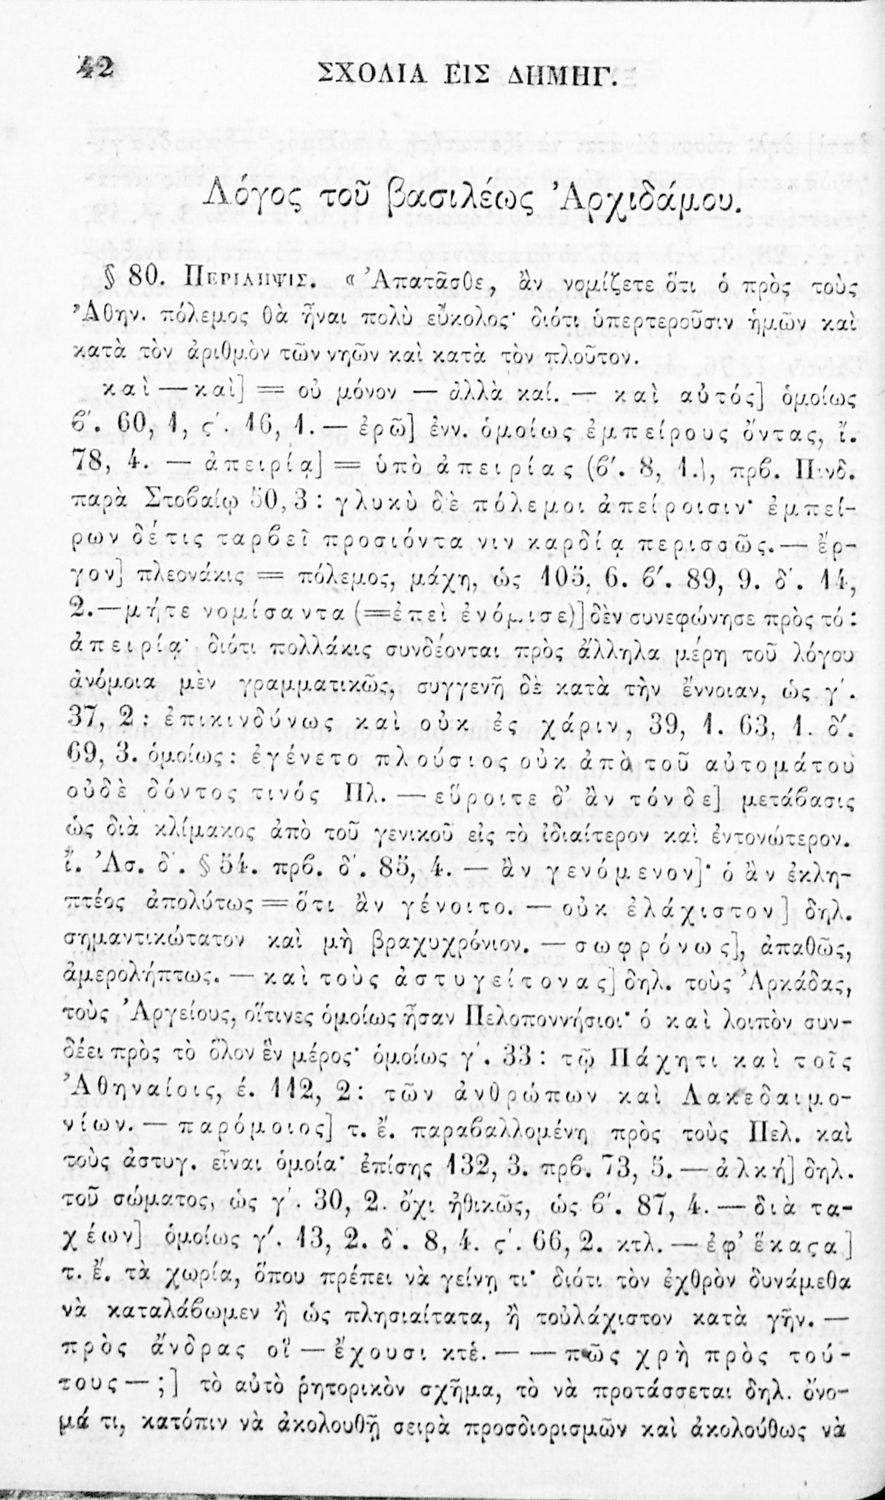 42 ΣΧΟΛΙΑ ΕΙΣ ΔΗΜΗΓ.
Λόγος τοῦ βασιλέως Ἀρχιδάμου.
§ 80. ΠΕΡΙΛΗΨΙΣ. «Ἀπατᾶσθε, ἂν νομίζετε ὅτι ὁ πρὸς τοὺς
Ἀθην. πόλεμος θὰ ἦναι πολὺ εὔκολος· διότι ὑπερτεροῦσιν ἡμῶν καὶ
κατὰ τὸν ἀριθμὸν τῶν νηῶν καὶ κατα τὸν πλοῦτον.
καὶ — καὶ] = οὐ μόνον — ἀλλὰ καί. — καὶ αὐτός] ὁμοίως
ϐ'. 60, 1, ϛ'. 16, 1. — ἐρῶ] ἐνν. ὁμοίως ἐμπείρους ὄντας, ἴ.
78, 4. — ἀπειρίᾳ] = ὑπὸ ἀπειρίας (ϐ'. 8, 1.), πρϐ. Πινδ.
παρὰ Στοϐαίῳ 50, 3 : γλυκὺ δὲ πόλεμοι ἀπείροισιν· ἐμπεί-
ρων δέ τις ταρϐεῖ προσιόντα νιν καρδίᾳ περισσῶς. — ἔρ-
γον] πλεονάκις = πόλεμος, μάχη, ὡς 105, 6. ϐ'. 89, 9. δ'. 14,
2. — μήτε νομίσαντα (=ἐπεὶ ἐνόμισε)] δὲν συνεφώνησε πρὸς τό :
ἀπειρίᾳ· διότι πολλάκις συνδέονται πρὸς ἄλληλα μέρη τοῦ λόγου
ἀνόμοια μὲν γραμματικῶς, συγγενῆ δὲ κατὰ τὴν ἔννοιαν, ὡς γ'.
37, 2 : ἐπικινδύνως καὶ οὐκ ἐς χάριν, 39, 1. 63, 1. δ'.
69, 3. ὁμοίως : ἐγένετο πλούσιος οὐκ ἀπὸ τοῦ αὐτομάτου
οὐδὲ δόντος τινός Πλ. — εὕροιτε δ' ἂν τόνδε] μετάϐασις
ὡς διὰ κλίμακος ἀπὸ τοῦ γενικοῦ εἰς τὸ ἰδιαίτερον καὶ ἐντονώτερον.
ἴ. Ἀσ. δ'. § 54. πρϐ. δ'. 85, 4. — ἂν γενόμενον]· ὁ ἂν ἐκλη-
πτέος ἀπολύτως = ὅτι ἂν γένοιτο. — οὐκ ἐλάχιστον] δηλ.
σημαντικώτατον καὶ μὴ βραχυχρόνιον. — σωφρόνως], ἀπαθῶς,
ἀμερολήπτως. — καὶ τοὺς ἀστυγείτονας] δηλ. τοὺς Ἀρκάδας,
τοὺς Ἀργείους, οἵτινες ὁμοίως ἦσαν Πελοποννήσιοι· ὁ καὶ λοιπὸν συν-
δέει πρὸς τὸ ὅλον ἓν μέρος· ὁμοίως γ'. 33 : τῷ Πάχητι καὶ τοῖς
Ἀθηναίοις, έ. 112, 2 : τῶν ἀνθρώπων καὶ Λακεδαιμο-
νίων. — παρόμοιος] τ. ἔ. παραϐαλλομένη πρὸς τοὺς Πελ. καὶ
τοὺς ἀστυγ. εἶναι ὁμοία· ἐπίσης 132, 3. πρϐ. 73, 5. — ἀλκή] δηλ.
τοῦ σώματος, ὡς γ'. 30, 2. ὄχι ἠθικῶς, ὡς ϐ'. 87, 4. — διὰ τα-
χέων] ὁμοίως γ'. 13, 2. δ'. 8, 4. ϛ'. 66, 2. κτλ. — ἐφ' ἕκαϛα]
τ. ἔ. τὰ χωρία, ὅπου πρέπει νὰ γείνῃ τι· διότι τὸν ἐχθρὸν δυνάμεθα
νὰ καταλάϐωμεν ἢ ὡς πλησιαίτατα, ἢ τοὐλάχιστον κατὰ γῆν. —
πρὸς ἄνδρας οἳ — ἔχουσι κτἑ. — — πῶς χρὴ πρὸς τού-
τους — ;] τὸ αὐτὸ ῥητορικὸν σχῆμα, τὸ νὰ προτάσσεται δηλ. ὄνο-
μά τι, κατόπιν νὰ ἀκολουθῇ σειρὰ προσδιορισμῶν καὶ ἀκολούθως νὰ